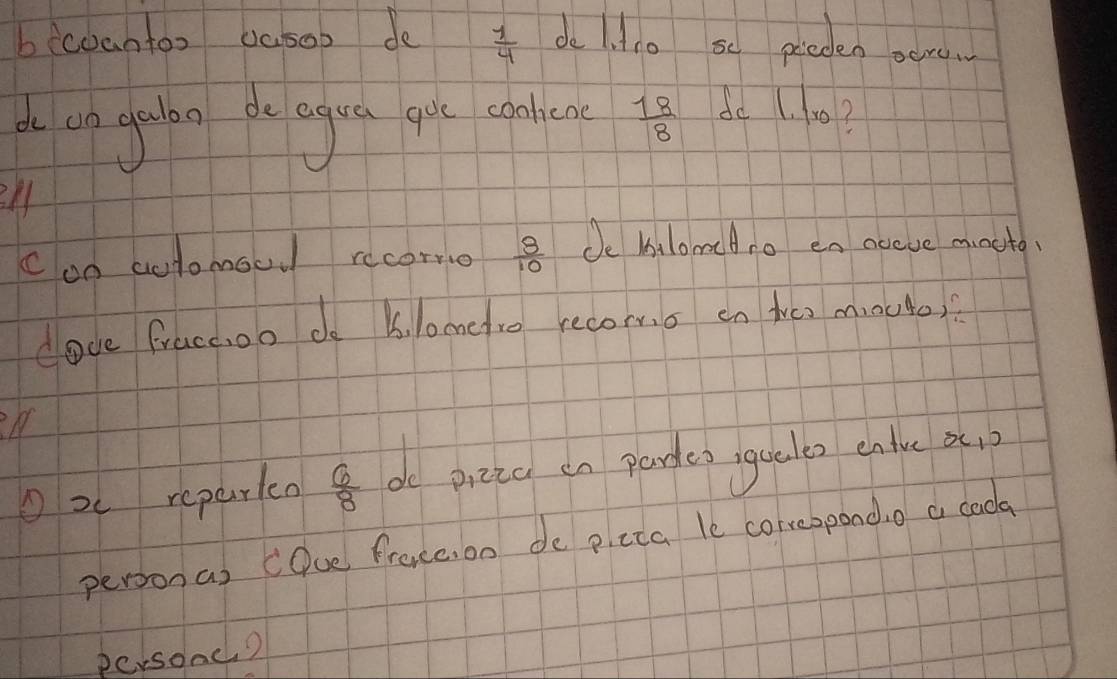 b ¿cuantos vasos de 1/4 de litro se pueden servir
de un galon de agua que contiene 18/8 de litro?
R//
c un automovil recorrio 9/10 de kilometro en nueve minutos
¿Que fraccion de kilometro recorrio en tres minutos?
R//
D se reparten 6/8 de pizza en partes iguales entre seis
personas ¿Que fraccion de pizza le correspondio a cada
persona?